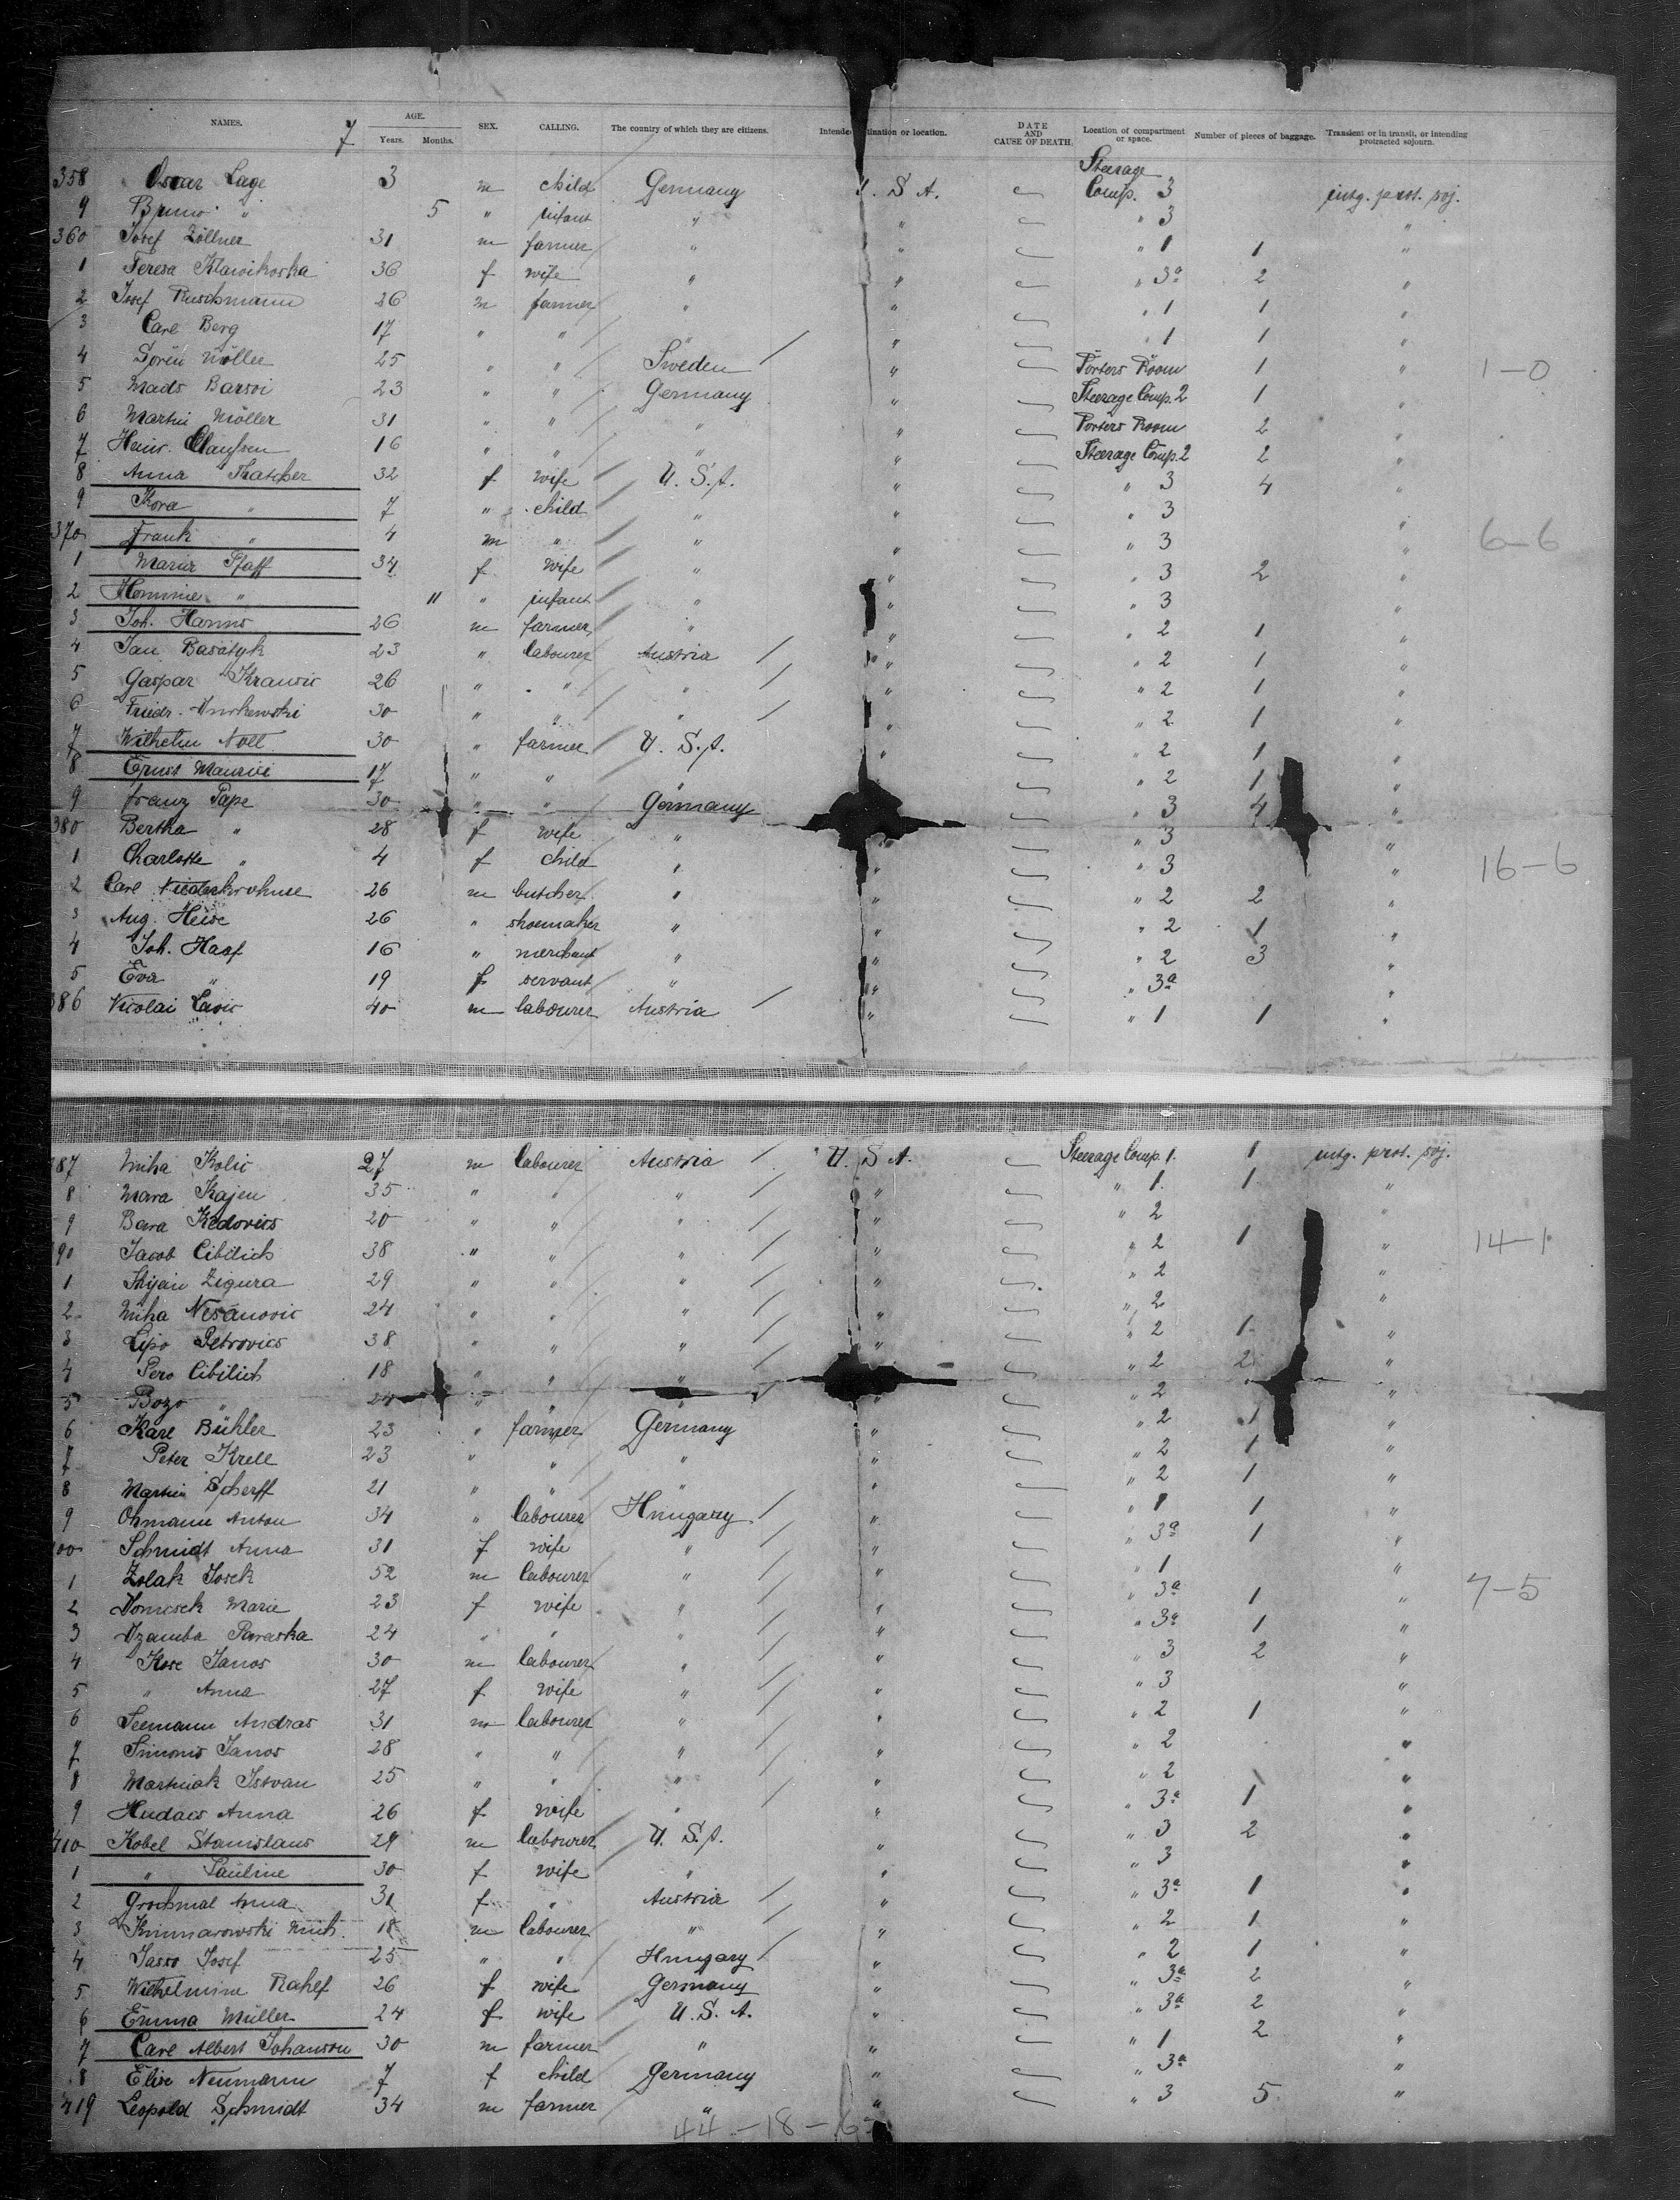 NAMES. 7 AGE. Years. Months. SEX. CALLING. The country of which they are citizens. Intended destination or location. DATE AND CAUSE OF DEATH. Location of compartment or space. Number of pieces of baggage. Transient or in transit, or intending protracted sojourn.
358 Oscar Lage 3 m child Germany U. S. A. Steerage Comp. 3 intg. prot. soj.
9 Bruno " 5 " infant " " " 3 "
360 Josef Zöllner 31 m farmer " " " 1 1 "
1 Teresa Klawikoska 36 f wife " " " 3a 2 "
2 Josef Ruschmann 26 m farmer " " " 1 1 "
3 Carl Berg 17 " " " " " 1 1 "
4 Sören Möller 25 " " Sweden " Porters Room 1 " 1-0
5 Mads Barsoi 23 " " Germany " Steerage Comp. 2 1 "
6 Martin Möller 31 " " " " Porters Room 2 "
7 Heinr. Claussen 16 " " " " Steerage Comp. 2 2 "
8 Anna Thatcher 32 f wife U. S. A. " " 3 4 "
9 Kora " 7 " child " " " 3 "
370 Frank " 4 m " " " " 3 " 6-6
1 Maria Pfaff 34 f wife " " " 3 2 "
2 Hommie " 11 " infant " " " 3 "
3 Joh. Hanns 26 m farmer " " " 2 1 "
4 Jan Basatyk 23 " labourer Austria " " 2 1 "
5 Gaspar Kransic 26 " " " " " 2 1 "
6 Friedr. 30 " " " " " 2 1 "
7 Wilhelm Noll 30 " farmer U. S. A. " " 2 1 "
8 Ernst Maurici 17 " " " " " 2 1 "
9 Franz Pape 30 " " Germany " " 3 4 "
380 Bertha " 28 f wife " " " 3 "
1 Charlotte " 4 f child " " " 3 " 16-6
2 Carl Niederkrohne 26 m butcher " " " 2 2 "
3 Aug. Heise 26 " shoemaker " " " 2 1 "
4 Joh. Haaf 16 " merchant " " " 2 3 "
5 Eva " 19 f servant " " " 3a "
386 Nicolai Lasic 40 m labourer Austria " " 1 1 "
387 Miha Kolic 27 m labourer Austria U. S. A. Steerage Comp. 1. 1 intg. prot. soj.
8 Mara Kajen 35 " " " " " 1. 1 "
9 Bara Kedovics 20 " " " " " 2 "
390 Jacob Cibilich 38 " " " " " 2 1 " 14-1
1 Stijan Zigura 29 " " " " " 2 "
2 Miha Nesanovic 24 " " " " " 2 "
3 Lipo Petrovics 38 " " " " " 2 1 "
4 Pero Cibilich 18 " " " " " 2 2 "
5 Bozo " 24 " " " " " 2 "
6 Karl Bühler 23 " farmer Germany " " 2 1 "
7 Peter Krell 23 " " " " " 2 1 "
8 Martin Scherff 21 " " " " " 2 1 "
9 Ohmann Anton 34 " labourer Hungary " " 1 1 "
400 Schmidt Anna 31 f wife " " " 3a 1 "
1 Zolak Josek 52 m labourer " " " 1 " 7-5
2 Domesek Marie 23 f wife " " " 3a 1 "
3 Dzamba Paraska 24 " " " " " 3a 1 "
4 Kose Janos 30 m labourer " " " 3 2 "
5 " Anna 27 f wife " " " 3 "
6 Seemann Andras 31 m labourer " " " 2 1 "
7 Simonis Janos 28 " " " " " 2 "
8 Martniak Istvan 25 " " " " " 2 "
9 Hudacs Anna 26 f wife " " " 3a 1 "
410 Kobel Stanislaus 29 m labourer U. S. A. " " 3 2 "
1 " Pauline 30 f wife " " " 3 "
2 Grochmal Anna 31 f " Austria " " 3a 1 "
3 Kimmarowski Mich. 18 m labourer " " " 2 1 "
4 Sasso Josef 25 " " Hungary " " 2 1 "
5 Wilhelmine Rahlf 26 f wife Germany " " 3a 2 "
6 Emma Müller 24 f wife U. S. A. " " 3a 2 "
7 Carl Albert Johanson 30 m farmer " " " 1 2 "
8 Elise Neumann 7 f child Germany " " 3a "
419 Leopold Schmidt 34 m farmer " " " 3 5 "
44-18-6